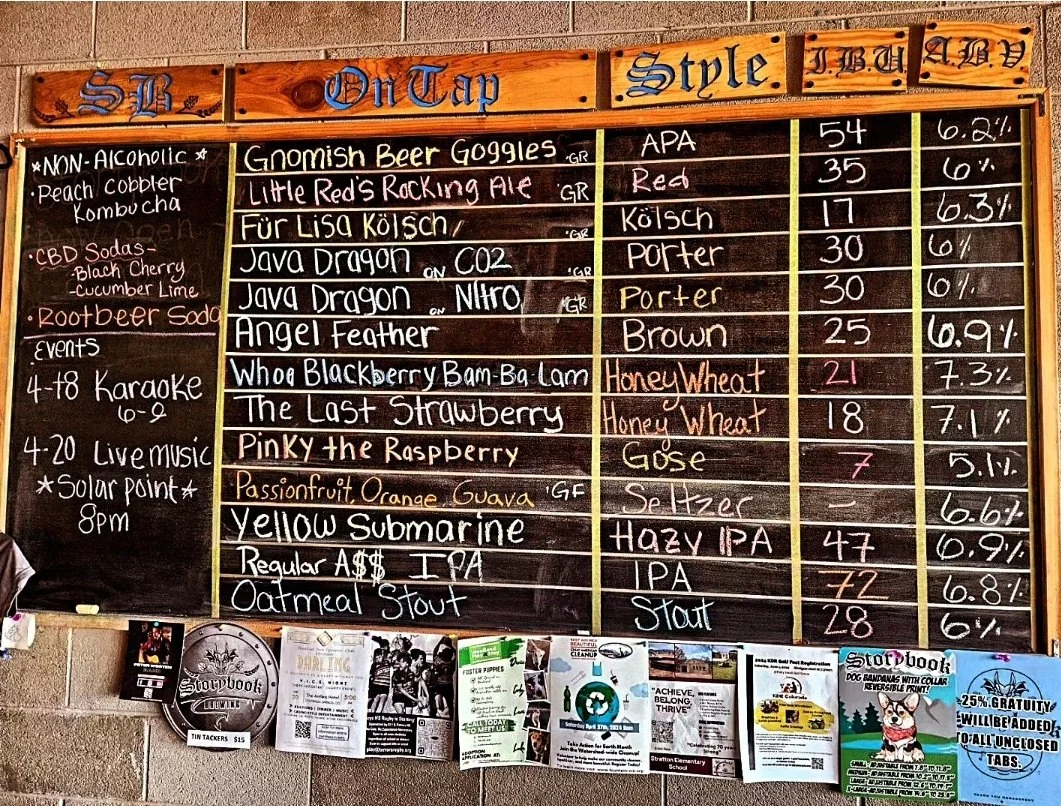 SB
On Tap
Style
I.B.U
A.B.V
*NON-Alcoholic*
·Peach Cobbler
Kombucha
·CBD Sodas-
-Black Cherry
-Cucumber Lime
·Rootbeer Soda
Events
4-18 Karaoke
6-9
4-20 Live music
*Solar point*
8pm
Gnomish Beer Goggles ·GR APA 54 6.2%
Little Red's Racking Ale ·GR Red 35 6%
Für Lisa Kölsch ·GR Kölsch 17 6.3%
Java Dragon ON CO2 ·GR Porter 30 6%
Java Dragon ON Nitro ·GR Porter 30 6%
Angel Feather Brown 25 6.9%
Whoa Blackberry Bam-Ba-Lam Honey Wheat 21 7.3%
The Last Strawberry Honey Wheat 18 7.1%
Pinky the Raspberry Gose 7 5.1%
Passionfruit, Orange, Guava ·GF Seltzer - 6.6%
Yellow Submarine Hazy IPA 47 6.9%
Regular A$$ IPA IPA 72 6.8%
Oatmeal Stout Stout 28 6%
Storybook
BREWING
TIN TACKERS $15
DARLING
FOSTER PUPPIES
CALL TODAY
TO MEET US!
ADOPTION
APPLICATION AT:
CLEANUP
Saturday April 27th, 2024 9am
Take Action for Earth Month
Join the Watershed-wide Cleanup!
"ACHIEVE,
BELONG,
THRIVE"
Stratton Elementary
School
Golf Fest Registration
Storybook
DOG BANDANAS WITH COLLAR
REVERSIBLE PRINT!
25% GRATUITY
WILL BE ADDED
TO ALL UNCLOSED
TABS.